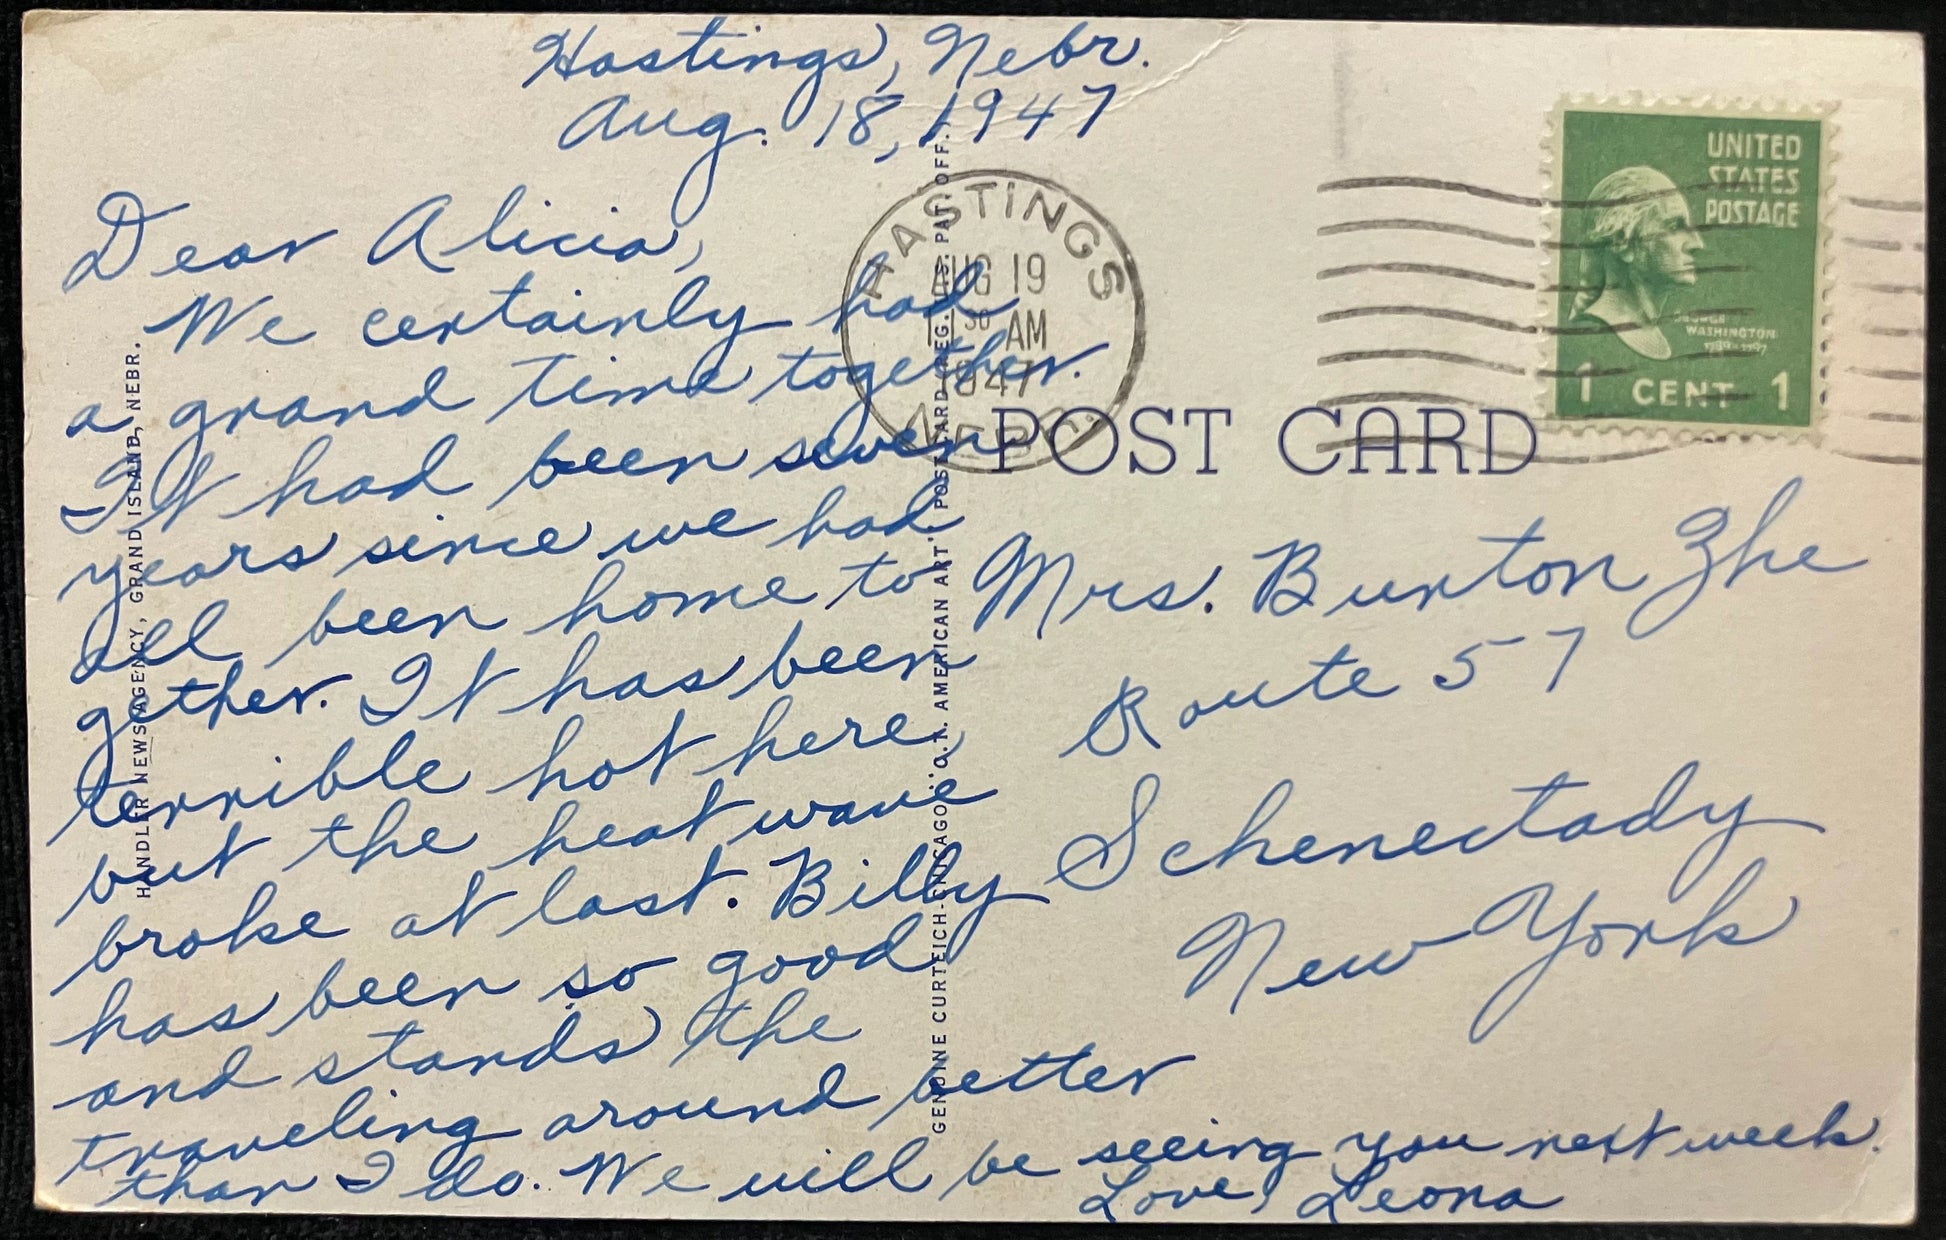 Hastings, Nebr.
Aug. 18, 1947
Dear Alicia,
We certainly had
a grand time together.
It had been seven
years since we had
all been home to
gether. It has been
terrible hot here,
but the heat wave
broke at last. Billy
has been so good
and stands the
traveling around better
than I do. We will be seeing you next week.
Love, Leona
HASTINGS
AUG 19
11 30 AM
1947
NEBR.
UNITED
STATES
POSTAGE
GEORGE
WASHINGTON
1789-1797
1 CENT 1
POST CARD
Mrs. Burton Zhe
Route 57
Schenectady
New York
HANDLER NEWS AGENCY, GRAND ISLAND, NEBR.
GENUINE CURTEICH-CHICAGO "C.T. AMERICAN ART" POST CARD (REG. U.S. PAT. OFF.)